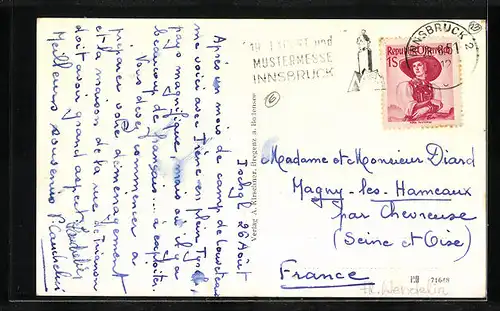 Ischgl 26 Août
Après un mois de camp de louveteaux
me voici avec Pierre en plein Tyrol,
pays magnifique, mais où il y a
beaucoup de français... à exploiter.
Vous devez commencer à
préparer votre déménagement
et la maison de la rue de Trianon
doit avoir grand aspect.
Meilleurs souvenirs
P. Cauchelier
Verlag A. Kirschner, Bregenz a. Bodensee
6
EXPORT und
MUSTERMESSE
INNSBRUCK
INNSBRUCK 2
51
Republik Österreich
1S
Madame et Monsieur Diard
Magny-les-Hameaux
par Chevreuse
(Seine et Oise)
France